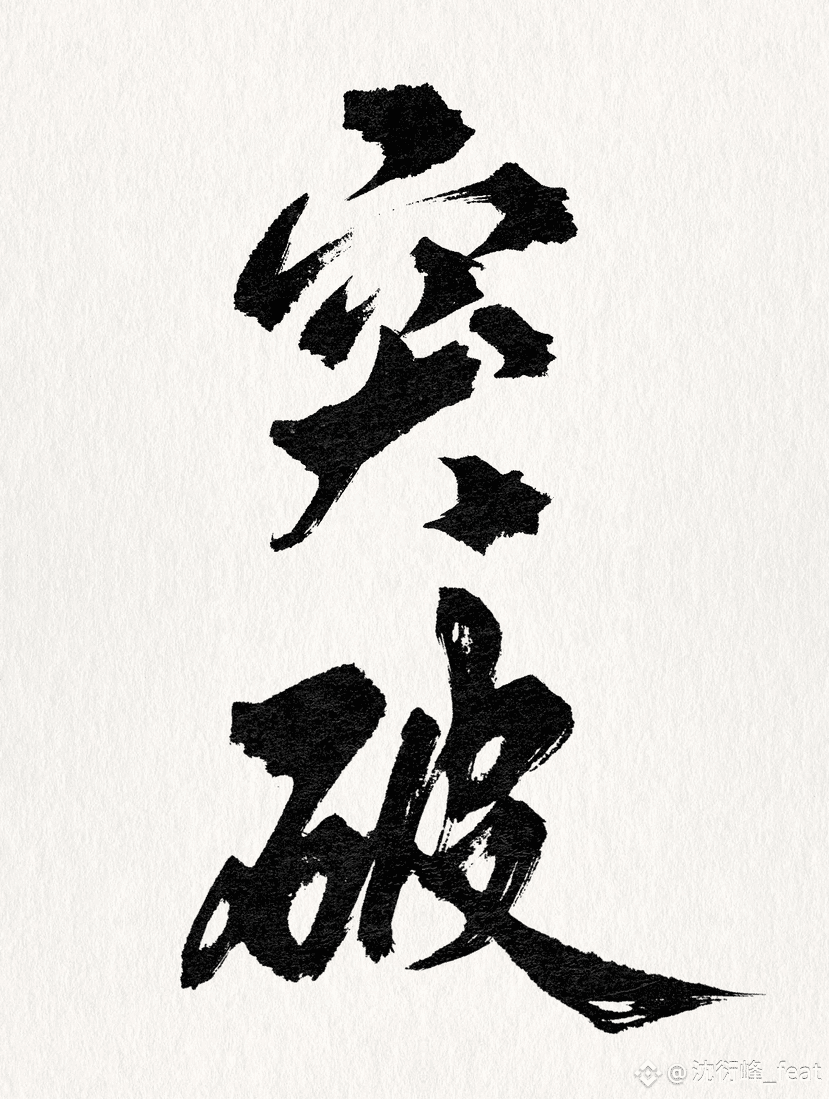 突
破
@沈衍峰_feat